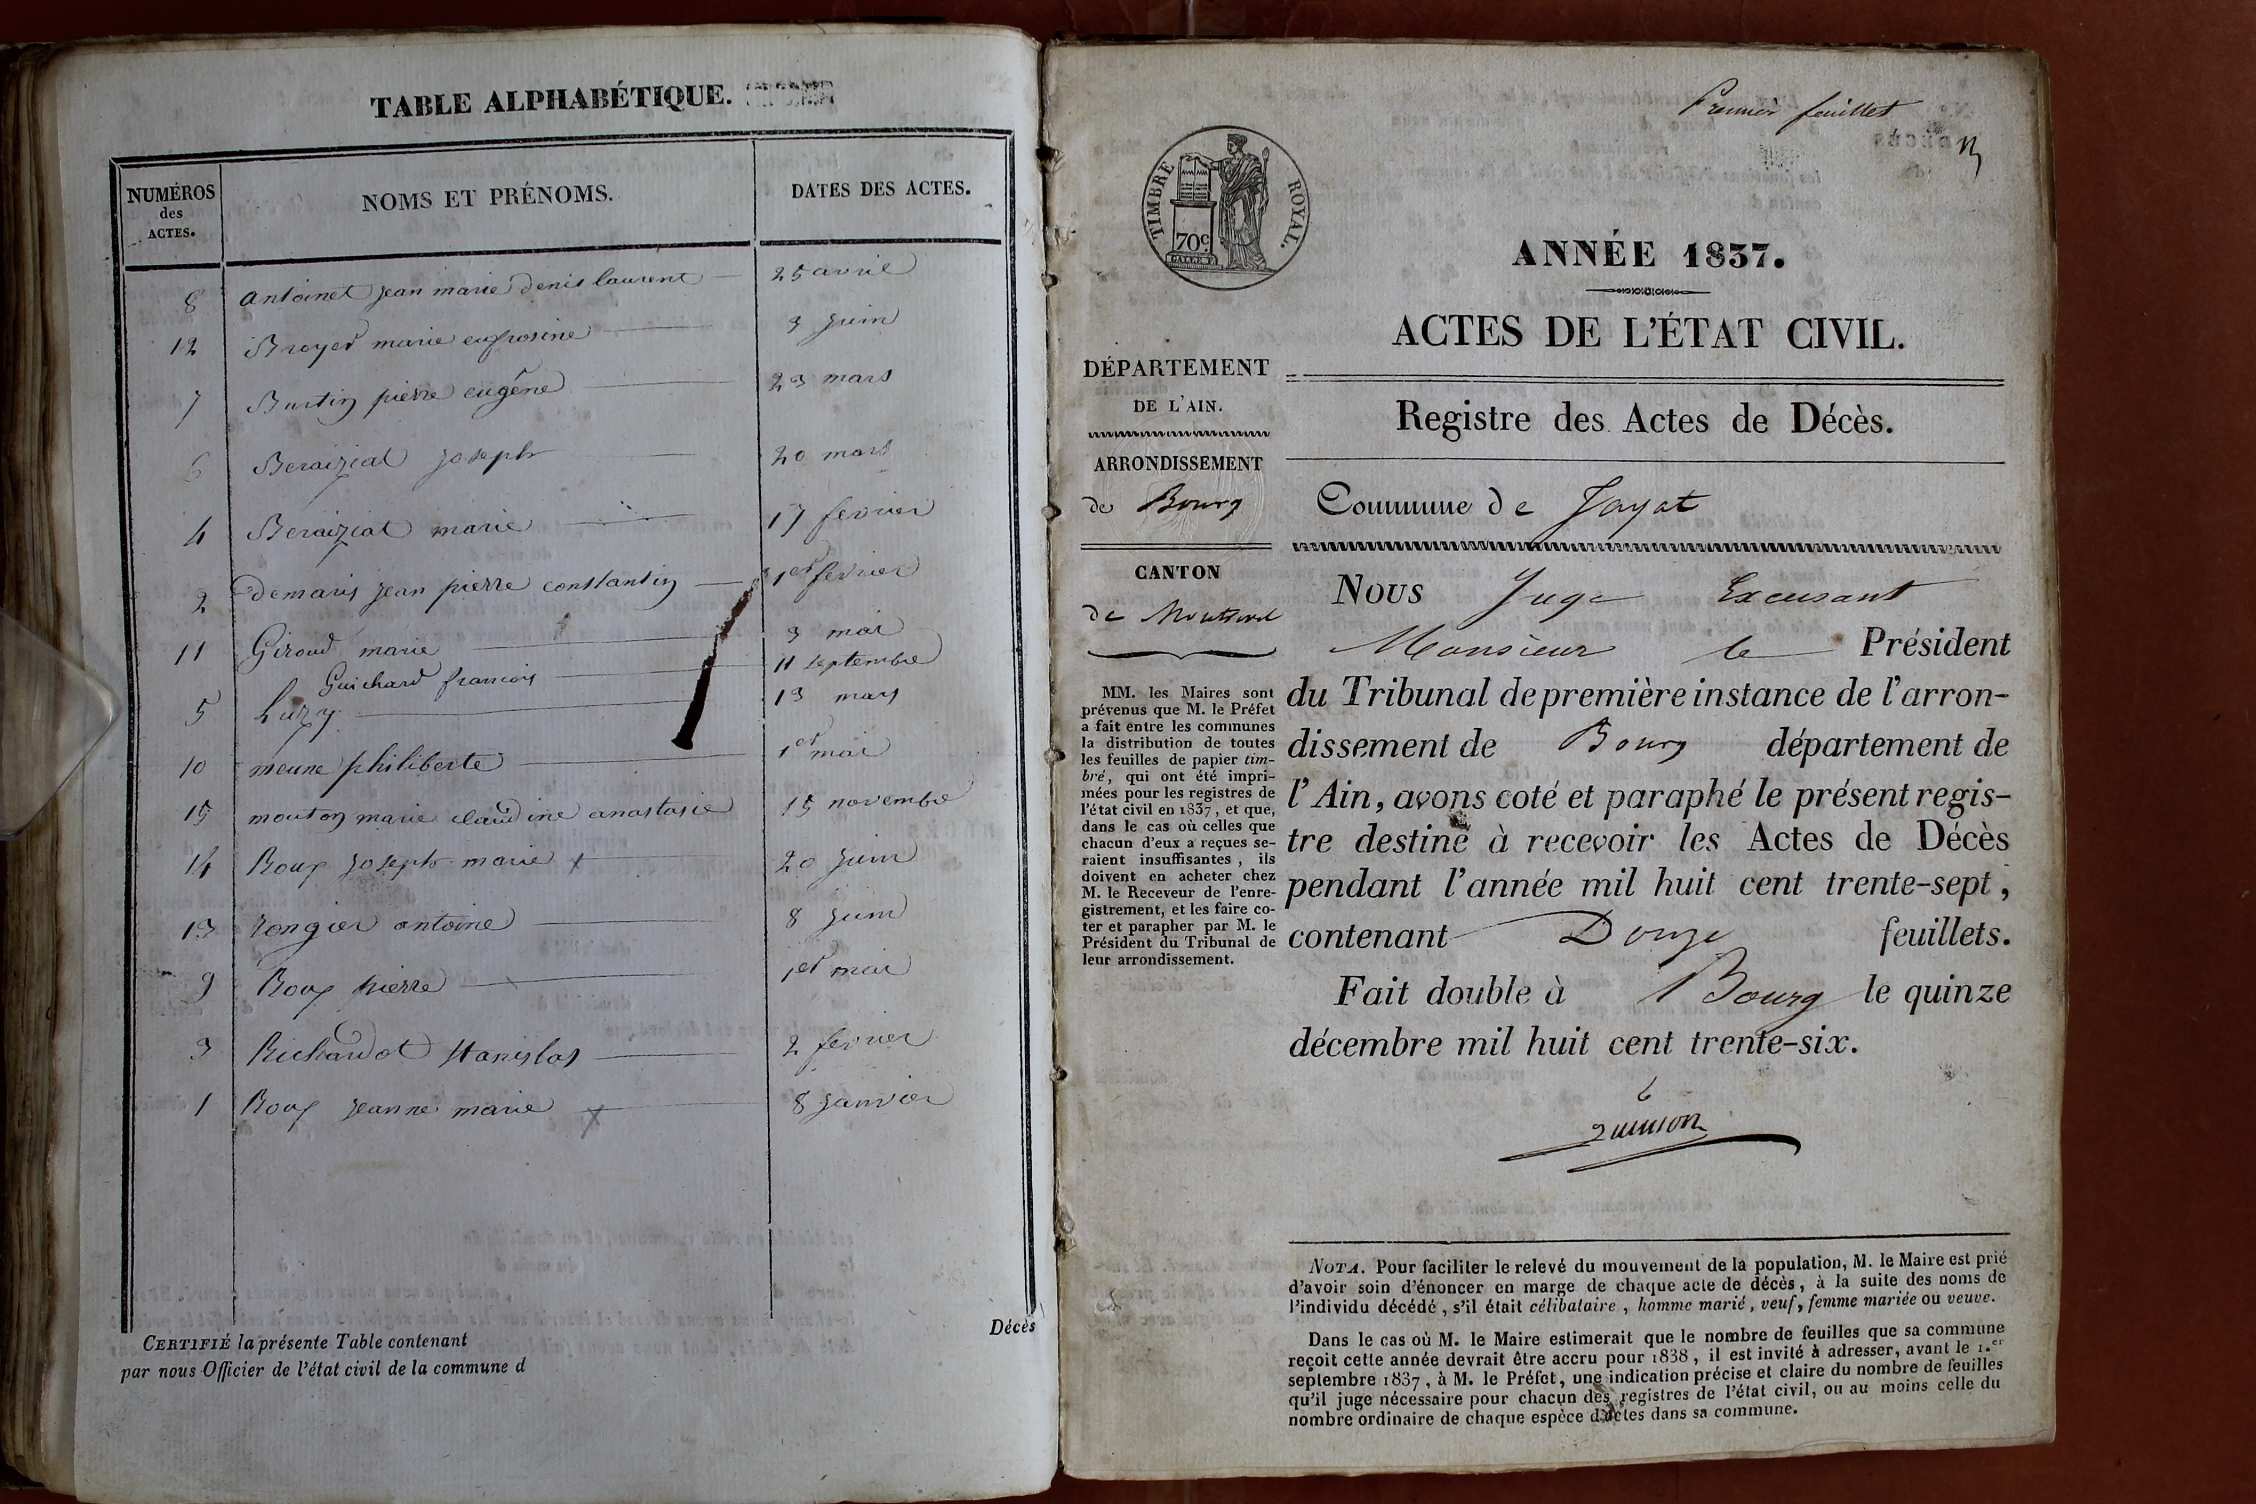 TABLE ALPHABÉTIQUE.
NUMÉROS des ACTES.
NOMS ET PRÉNOMS.
DATES DES ACTES.
8 antoinet jean marie denis laurent 25 avril
12 Broyer marie eufrosine 3 juin
7 Burtin pierre eugêne 23 mars
6 Beraiziat joseph 20 mars
4 Beraiziat marie 17 fevrier
2 demaris jean pierre constantin 1er fevrier
11 Giroud marie 3 mai
Guichard francois 11 septembre
5 Luzy 13 mars
10 meune philiberte 1er mai
15 mouton marie claudine anastasie 15 novembre
14 Roux joseph marie x 20 juin
13 rongier antoine 8 juin
9 Roux pierre 1er mai
3 Richardot stanislas 2 fevrier
1 Roux jeanne marie x 8 janvier
Décès
CERTIFIÉ la présente Table contenant
par nous Officier de l'état civil de la commune d
Premier feuillet
TIMBRE ROYAL.
70c.
ANNÉE 1837.
ACTES DE L'ÉTAT CIVIL.
DÉPARTEMENT
DE L'AIN.
ARRONDISSEMENT
de Bourg
CANTON
de Montrevel
MM. les Maires sont
prévenus que M. le Préfet
a fait entre les communes
la distribution de toutes
les feuilles de papier tim-
bré, qui ont été impri-
mées pour les registres de
l'état civil en 1837, et que,
dans le cas où celles que
chacun d'eux a reçues se-
raient insuffisantes, ils
doivent en acheter chez
M. le Receveur de l'enre-
gistrement, et les faire co-
ter et parapher par M. le
Président du Tribunal de
leur arrondissement.
Registre des Actes de Décès.
Commune de Jayat
Nous Juge Excusant
Monsieur le Président
du Tribunal de première instance de l'arron-
dissement de Bourg département de
l'Ain, avons coté et paraphé le présent regis-
tre destiné à recevoir les Actes de Décès
pendant l'année mil huit cent trente-sept,
contenant Douze feuillets.
Fait double à Bourg le quinze
décembre mil huit cent trente-six.
NOTA. Pour faciliter le relevé du mouvement de la population, M. le Maire est prié
d'avoir soin d'énoncer en marge de chaque acte de décès, à la suite des noms de
l'individu décédé, s'il était célibataire, homme marié, veuf, femme mariée ou veuve.
Dans le cas où M. le Maire estimerait que le nombre de feuilles que sa commune
reçoit cette année devrait être accru pour 1838, il est invité à adresser, avant le 1.er
septembre 1837, à M. le Préfet, une indication précise et claire du nombre de feuilles
qu'il juge nécessaire pour chacun des registres de l'état civil, ou au moins celle du
nombre ordinaire de chaque espèce d'actes dans sa commune.